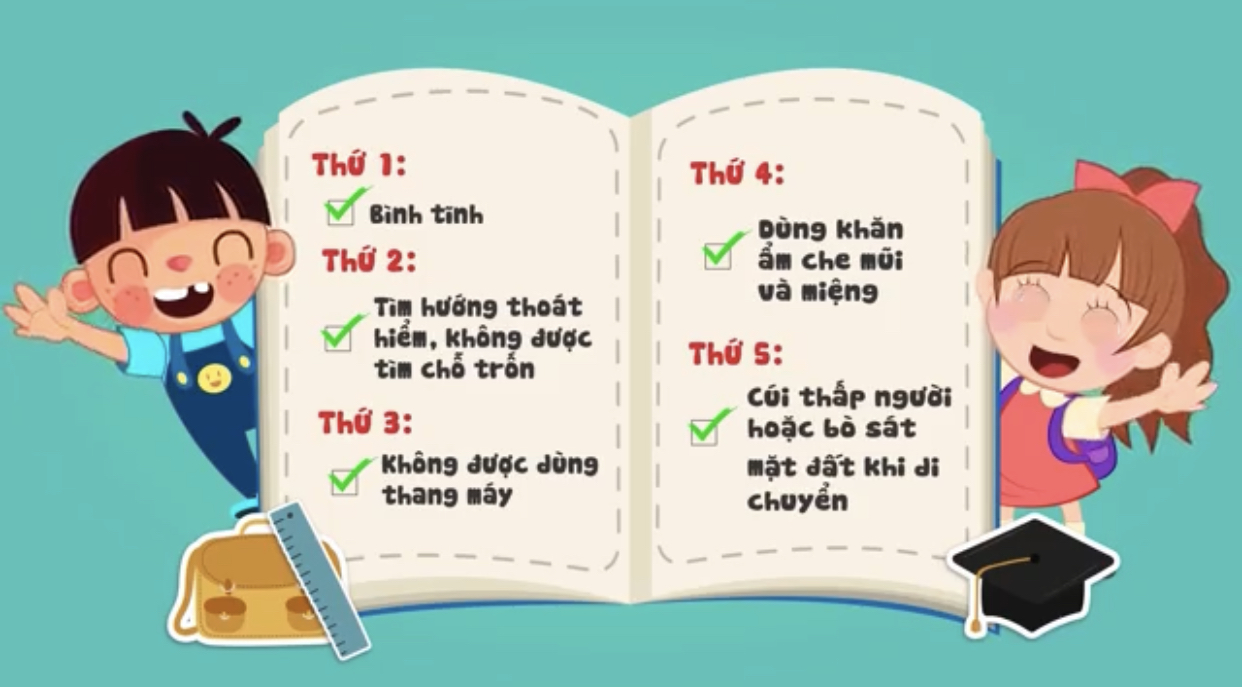 Thứ 1:
Bình tĩnh
Thứ 2:
Tìm hướng thoát
hiểm, không được
tìm chỗ trốn
Thứ 3:
Không được dùng
thang máy
Thứ 4:
Dùng khăn
ẩm che mũi
và miệng
Thứ 5:
Cúi thấp người
hoặc bò sát
mặt đất khi di
chuyển